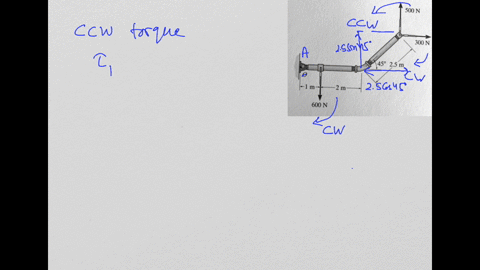 CCW torque
τ₁
500 N
CCW
2.5sin45°
300 N
A
45° 2.5 m
CW
1 m 2 m
2.5cos45°
600 N
CW